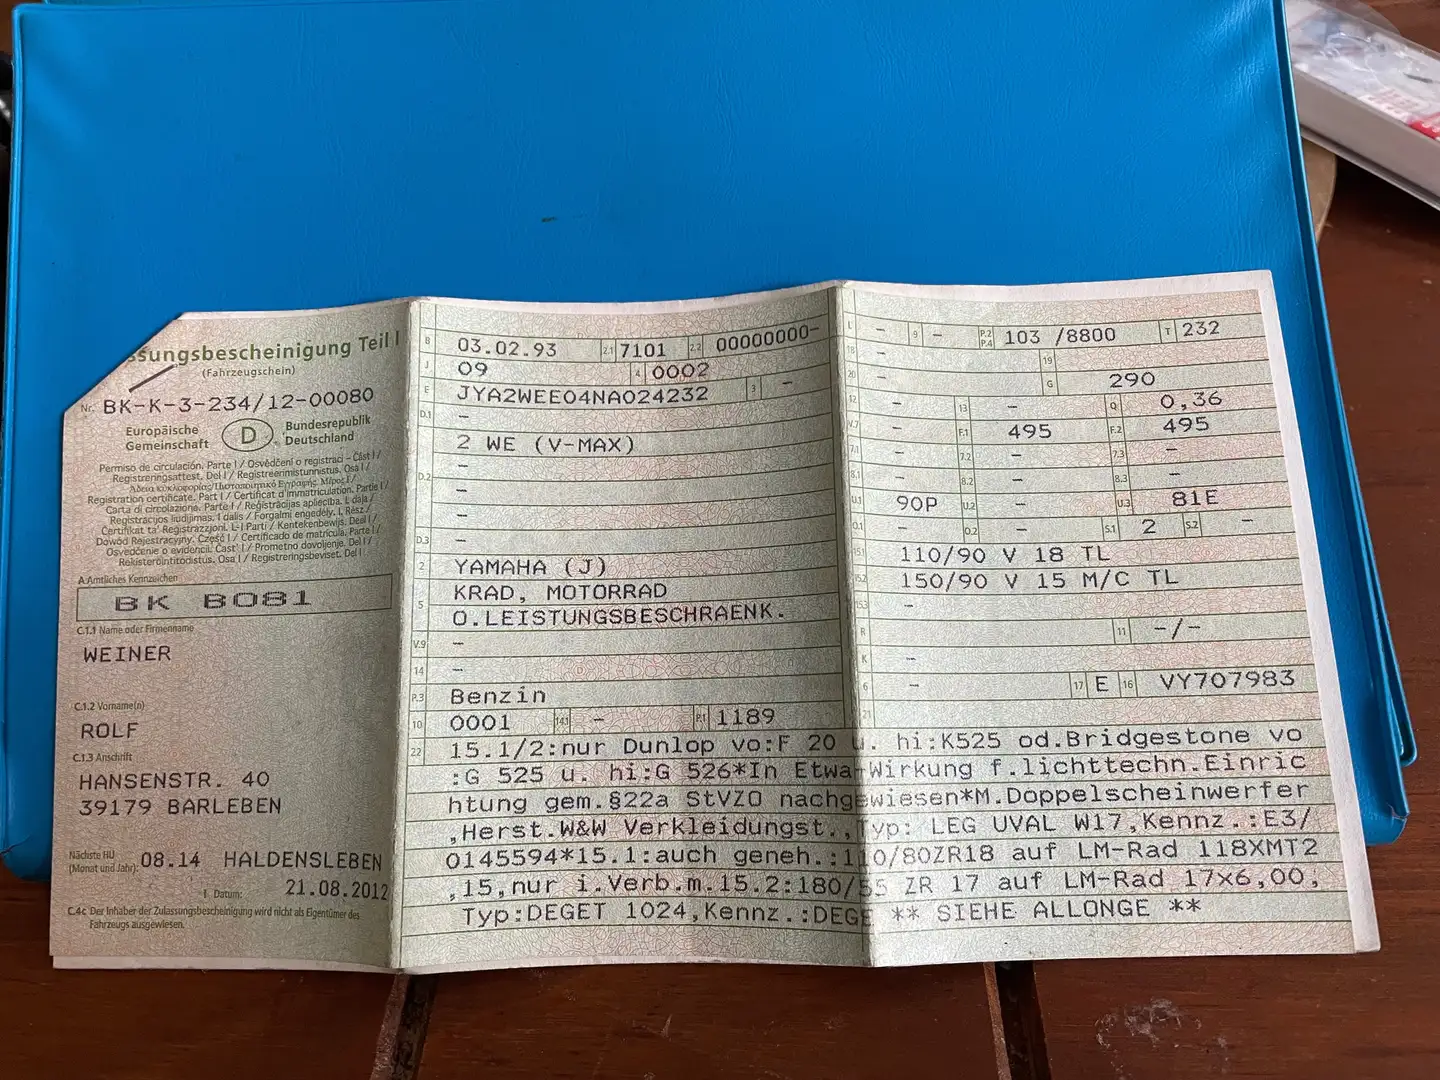 ssungsbescheinigung Teil I
(Fahrzeugschein)
Nr. BK-K-3-234/12-00080
Europäische Gemeinschaft
D
Bundesrepublik Deutschland
Permiso de circulación. Parte I / Osvědčení o registraci - Část I /
Registreringsattest. Del I / Registreerimistunnistus. Osa I /
Άδεια κυκλοφορίας/Πιστοποιητικό Εγγραφής. Μέρος I /
Registration certificate. Part I / Certificat d'immatriculation. Partie I /
Carta di circolazione. Parte I / Reģistrācijas apliecība. I. daļa /
Registracijos liudijimas. I dalis / Forgalmi engedély. I. Rész /
Ċertifikat ta' Reġistrazzjoni. L-I Parti / Kentekenbewijs. Deel I /
Dowód Rejestracyjny. Część I / Certificado de matrícula. Parte I /
Osvedčenie o evidencii. Časť I / Prometno dovoljenje. Del I /
Rekisteröintitodistus. Osa I / Registreringsbeviset. Del I
A Amtliches Kennzeichen
BK BO81
C.1.1 Name oder Firmenname
WEINER
C.1.2 Vorname(n)
ROLF
C.1.3 Anschrift
HANSENSTR. 40
39179 BARLEBEN
Nächste HU
(Monat und Jahr): 08.14 HALDENSLEBEN
I Datum: 21.08.2012
C.4c Der Inhaber der Zulassungsbescheinigung wird nicht als Eigentümer des
Fahrzeugs ausgewiesen.
B 03.02.93 2.1 7101 2.2 00000000-
J 09 4 0002
E JYA2WEE04NA024232 3 -
D.1 -
2 WE (V-MAX)
-
D.2 -
-
D.3 -
2 YAMAHA (J)
5 KRAD, MOTORRAD
O.LEISTUNGSBESCHRAENK.
V.9 -
14 -
P.3 Benzin
10 0001 14.1 - P.1 1189
L - 9 - P.2 P.4 103 /8800 T 232
18 - 19
20 - G 290
12 - 13 - Q 0,36
V.7 - F.1 495 F.2 495
7.1 - 7.2 - 7.3 -
8.1 - 8.2 - 8.3 -
U.1 90P U.2 - U.3 81E
O.1 - O.2 - S.1 2 S.2 -
15.1 110/90 V 18 TL
15.2 150/90 V 15 M/C TL
15.3 -
R 11 -/-
K -
6 - 17 E 16 VY707983
21
22 15.1/2:nur Dunlop vo:F 20 u. hi:K525 od.Bridgestone vo
:G 525 u. hi:G 526*In Etwa-Wirkung f.lichttechn.Einric
htung gem.§22a StVZO nachgewiesen*M.Doppelscheinwerfer
,Herst.W&W Verkleidungst.,Typ: LEG UVAL W17,Kennz.:E3/
0145594*15.1:auch geneh.:110/80ZR18 auf LM-Rad 118XMT2
,15,nur i.Verb.m.15.2:180/55 ZR 17 auf LM-Rad 17x6,00,
Typ:DEGET 1024,Kennz.:DEGE ** SIEHE ALLONGE **